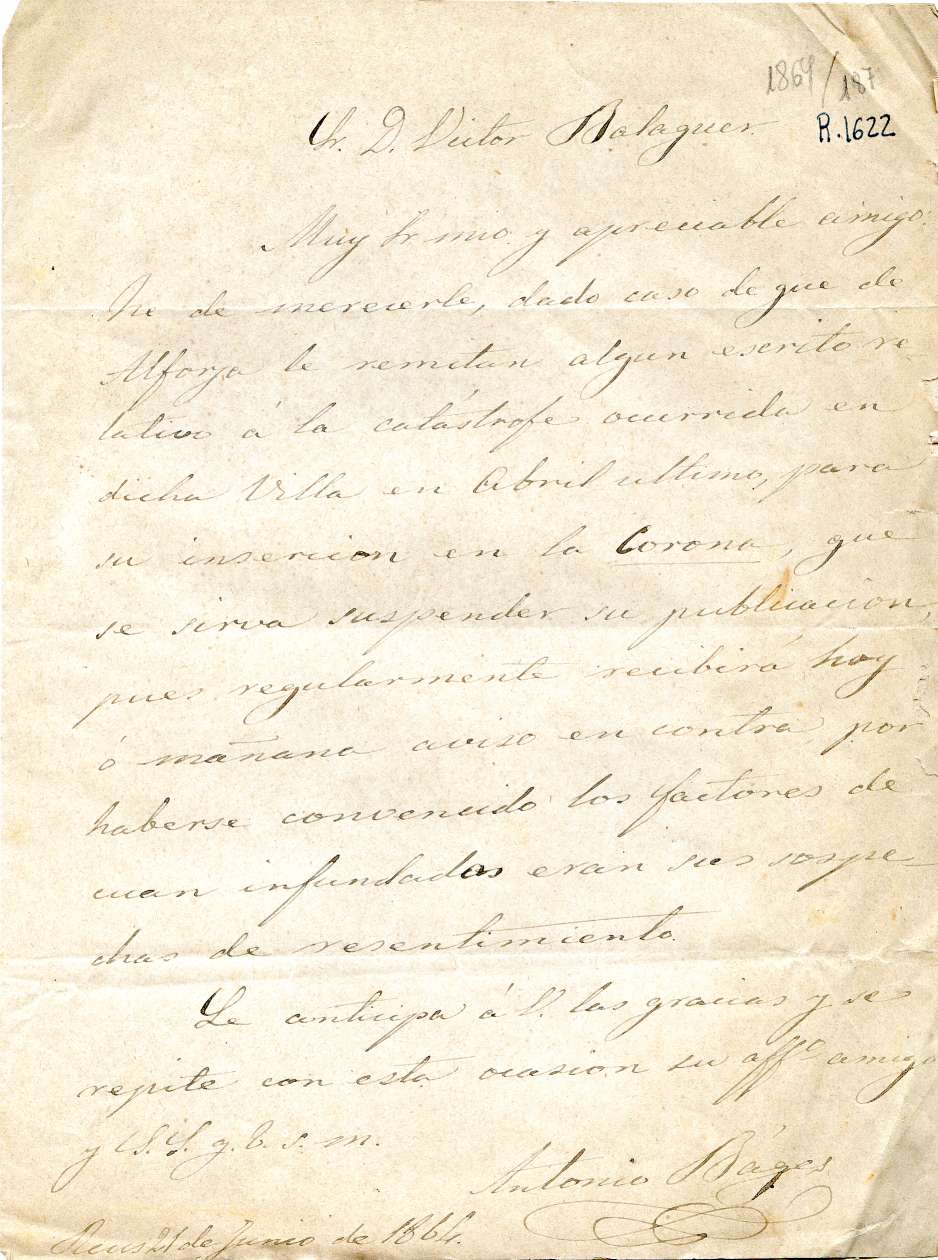 1864/187
R.1622
Sr. D. Victor Balaguer
Muy Sr mio y apreciable amigo:
He de merecerle, dado caso de que de
Alforja le remitan algun escrito re
lativo á la catástrofe ocurrida en
dicha Villa en Abril ultimo, para
su insercion en la Corona, que
se sirva suspender su publicacion,
pues regularmente recibirá hoy
ó mañana aviso en contra, por
haberse convencido los factores de
cuan infundadas eran sus sospe
chas de resentimiento.
Le anticipa á V. las gracias y se
repite con esta ocasion su affº. amigo
y S. S. q. b. s. m.
Antonio Báges
Reus 21 de Junio de 1864.